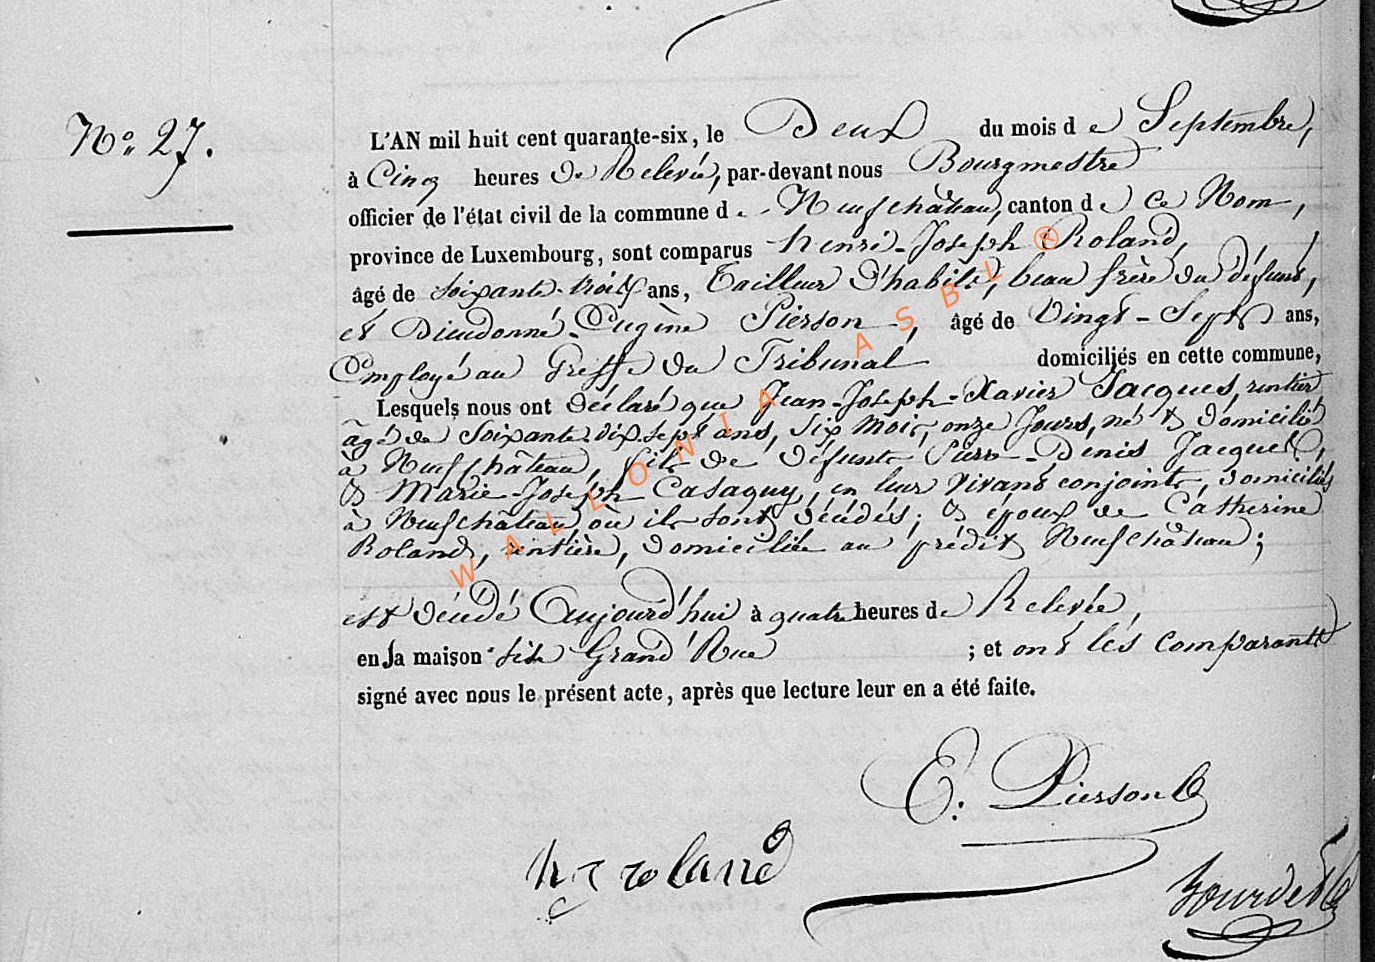 No 27.
L'AN mil huit cent quarante-six, le Deux du mois de Septembre,
à Cinq heures de Relevée, par-devant nous Bourgmestre
officier de l'état civil de la commune de Neufchâteau, canton de Ce Nom,
province de Luxembourg, sont comparus henri-Joseph Roland,
âgé de Soixante-trois ans, Tailleur d'habits, beau frère du défunt,
et Dieudonné-Eugène Pierson, âgé de Vingt-Sept ans,
Employé au Greffe du Tribunal domiciliés en cette commune,
Lesquels nous ont déclaré que Jean-Joseph-Xavier Jacques, rentier
âgé de Soixante-dix-sept ans, Six mois, onze Jours, né & domicilié
à Neufchâteau, fils de défunts Pierre-Denis Jacques,
& Marie-Joseph Casaquy, en leur vivant conjoints, domiciliés
à Neufchâteau où ils sont décédés; & époux de Catherine
Roland, rentière, domiciliée au prédit Neufchâteau;
est décédé Aujourd'hui à quatre heures de Relevée,
en la maison sise Grand'Rue ; et ont les comparants
signé avec nous le présent acte, après que lecture leur en a été faite.
E. Pierson
h J roland
Bourdet
WALLONIA ASBL ®